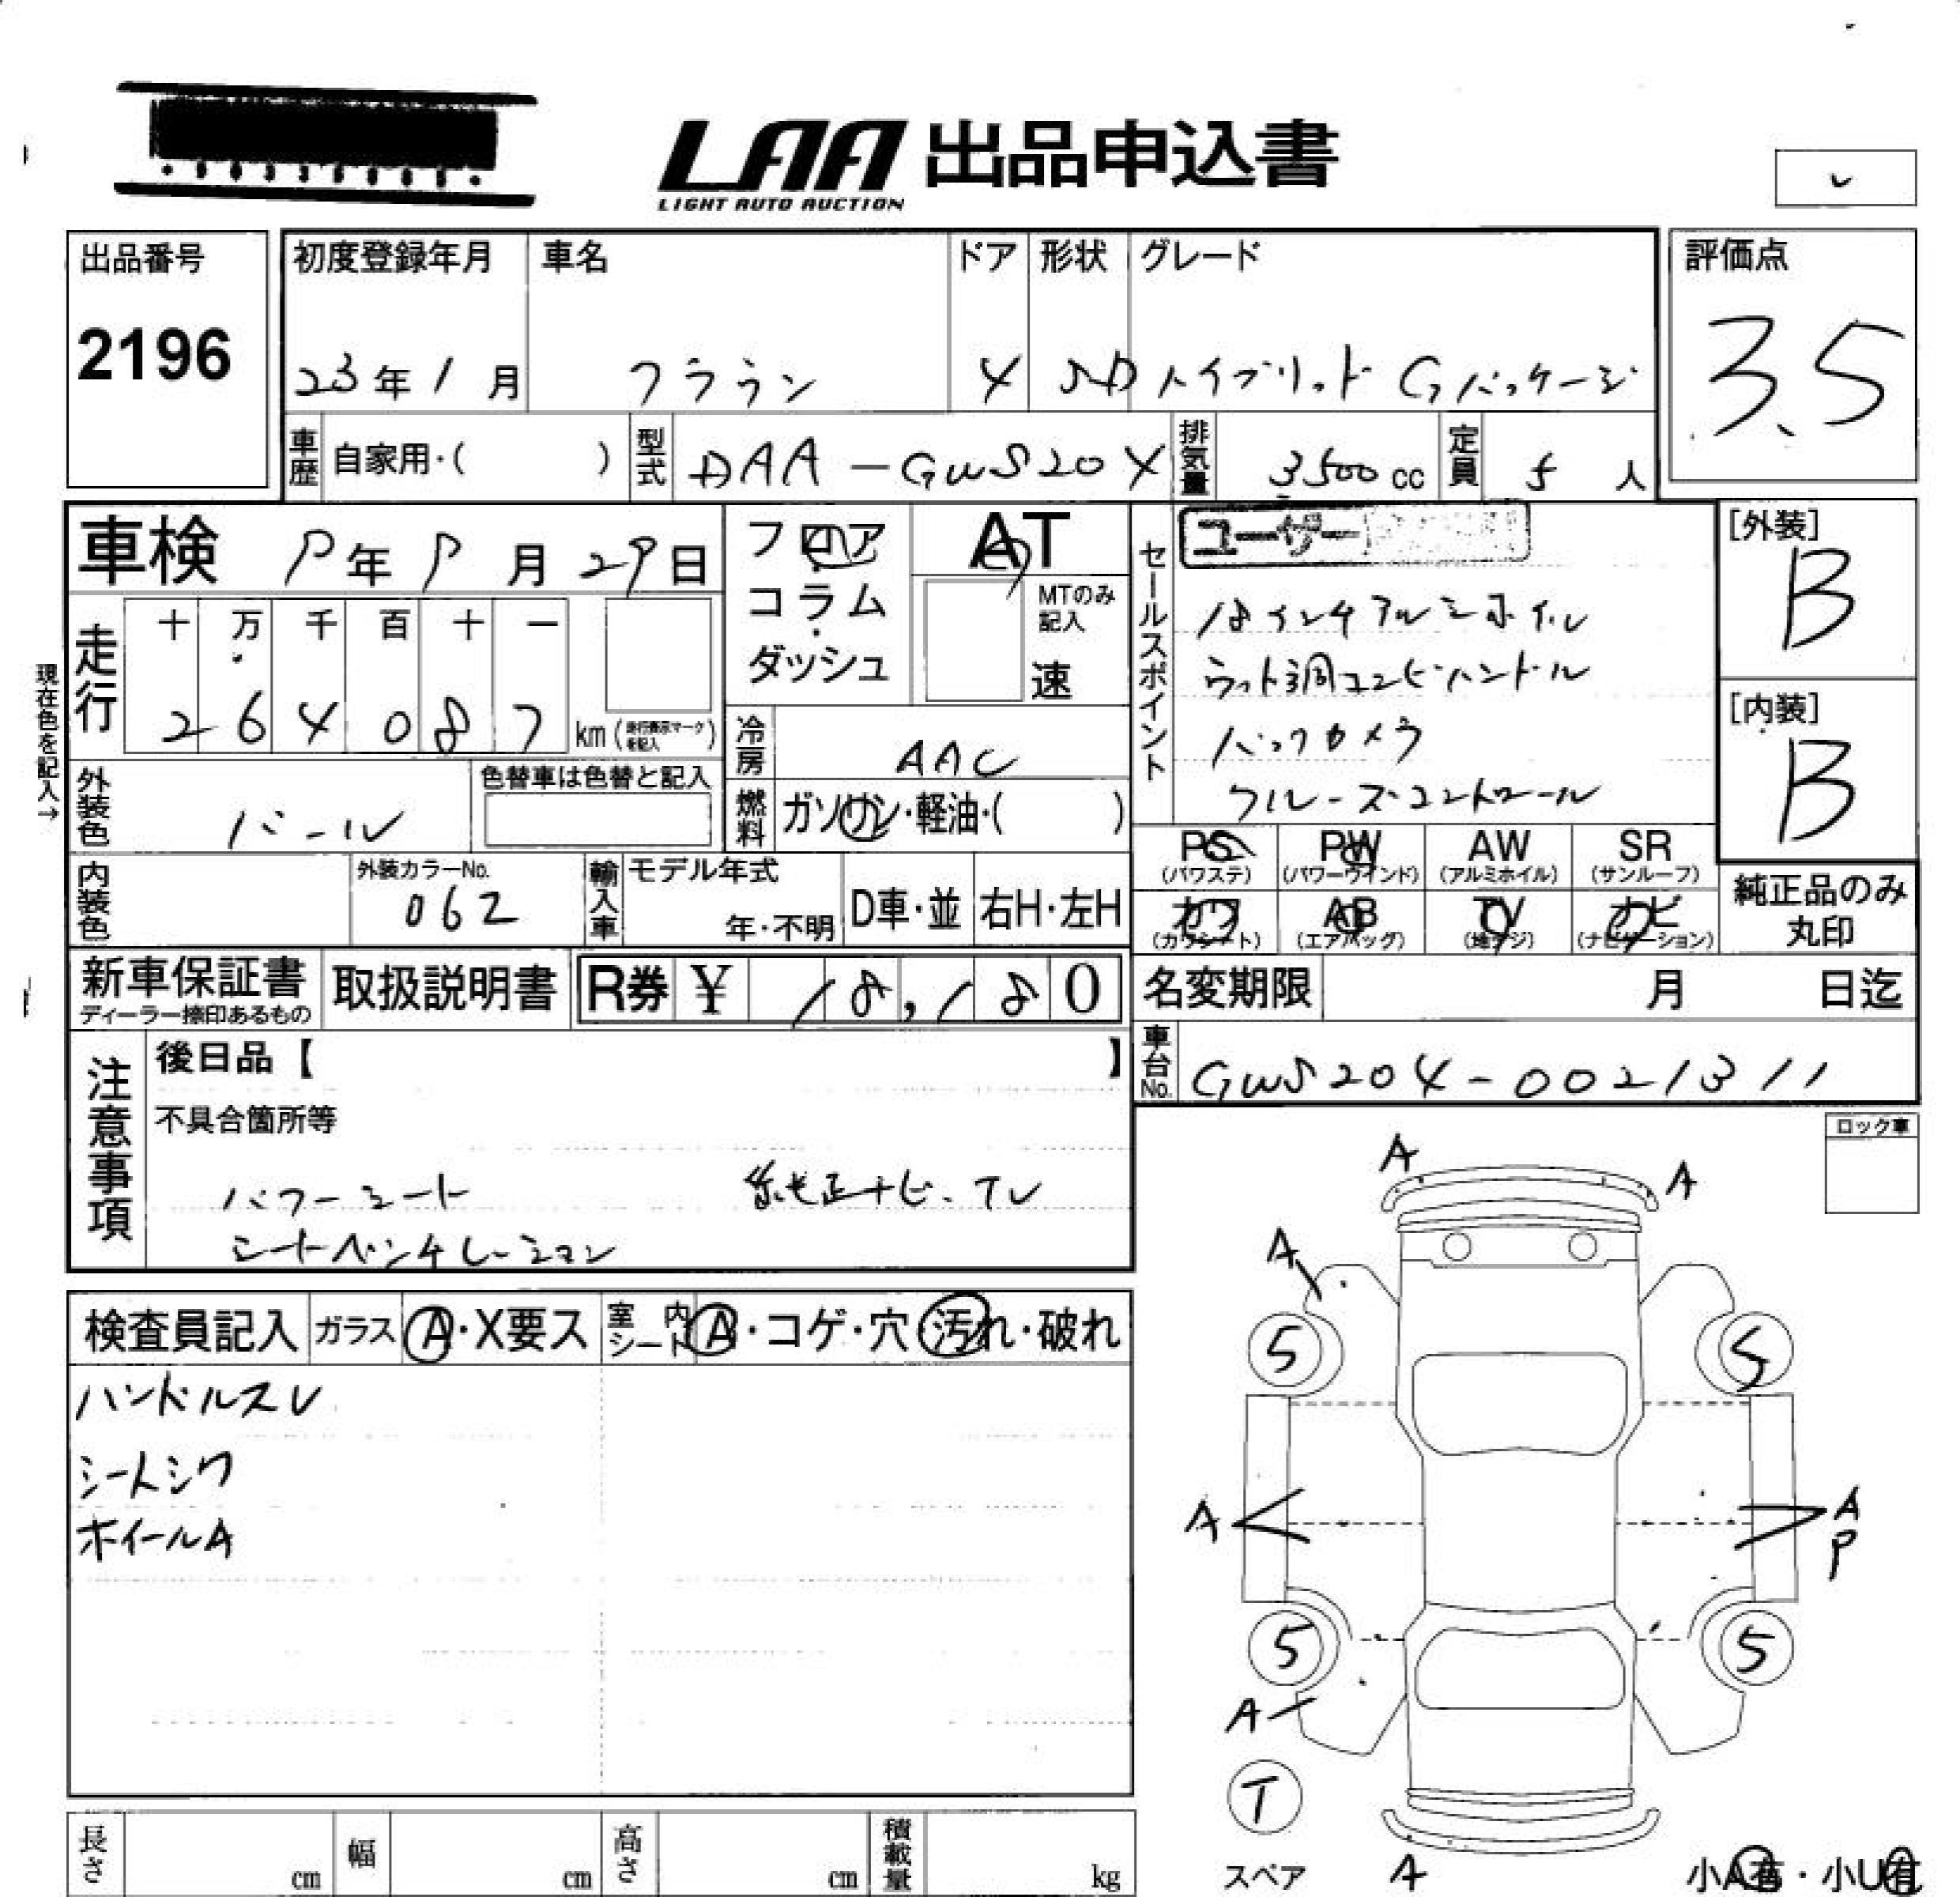 LAA 出品申込書
LIGHT AUTO AUCTION
出品番号
2196
初度登録年月
23年1月
車名
クラウン
ドア
4
形状
SD
グレード
ハイブリッド Gパッケージ
評価点
3.5
車歴 自家用・( )
型式 DAA-GWS204
排気量 3500cc
定員 5人
車検 9年9月29日
フロア
コラム・
ダッシュ
AT
MTのみ記入
速
セールスポイント
ユーザー
18インチアルミホイル
ウット調コンビハンドル
バックカメラ
クルーズコントロール
[外装]
B
[内装]
B
現在色を記入→
走行
十 万 千 百 十 一
2 6 4 0 8 7 km(走行表示マークを記入)
冷房 AAC
外装色 パール
色替車は色替と記入
燃料 ガソリン・軽油・( )
PS
(パワステ)
PW
(パワーウインド)
AW
(アルミホイル)
SR
(サンルーフ)
内装色
外装カラーNo.
062
輸入車
モデル年式
年・不明
D車・並
右H・左H
カワ
(カワシート)
AB
(エアバッグ)
TV
(地デジ)
ナビ
(ナビゲーション)
純正品のみ
丸印
新車保証書
ディーラー捺印あるもの
取扱説明書
R券 ¥ 18,180
名変期限 月 日迄
車台No. GWS204-0021311
注意事項
後日品【 】
不具合箇所等
パワーシート 純正ナビ・TV
シートベンチレーション
ロック車
検査員記入 ガラス A・X要ス 室内シート A・コゲ・穴・汚れ・破れ
ハンドルスレ
シートシワ
ホイールA
A
A
A
5 5
A A
P
5 5
A
T
スペア
A
小A有・小U有
長さ cm 幅 cm 高さ cm 積載量 kg